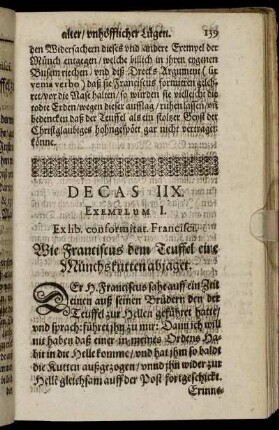 alter / vnhöfflicher Lügen. 139
den Widersachern dieses vnd andere Exempel der
Münch entgegen / welche billich in jhren eygenen
Busem riechen / vnd diß Drecks Argument (ŭr
venia verbo) daß sie Franciscus
vor die Nase halten / so würden sie vielleicht die
todte Erden wegen dieser aufflag / ruhen lassen / vñ
bedencken daß der Teuffel als ein stolzer Geyst der
Christglaubiges hohngespöt gar nicht vertragen
könne.
DECAS IIX.
EXEMPLUM I.
Ex lib. conformitat. Francisci.
Wie Franciscus dem Teuffel eine
Münchskutten abjaget.
DEr H. Franciscus sahe auff ein Zeit
einen auß seinen Brüdern den der
Teuffel zur Hellen geführet hatte /
vnd sprach: führet jhn zu mir: Dann ich will
nit haben daß einer in meines Ordens Ha-
bit in die Helle komme / vnd hat jhm so bald
die Kutten außgezogen / vnnd jhn wider zur
Hell gleichsam auff der Post fortgeschickt.
Erinne-